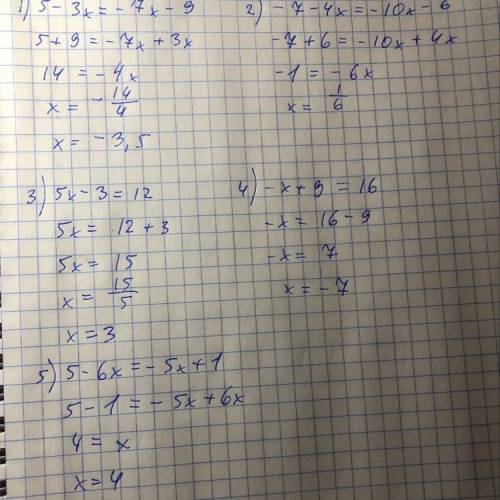 1) 5 - 3x = -7x - 9
5 + 9 = -7x + 3x
14 = -4x
x = -14/4
x = -3,5
2) -7 - 4x = -10x - 6
-7 + 6 = -10x + 4x
-1 = -6x
x = 1/6
3) 5x - 3 = 12
5x = 12 + 3
5x = 15
x = 15/5
x = 3
4) -x + 9 = 16
-x = 16 - 9
-x = 7
x = -7
5) 5 - 6x = -5x + 1
5 - 1 = -5x + 6x
4 = x
x = 4